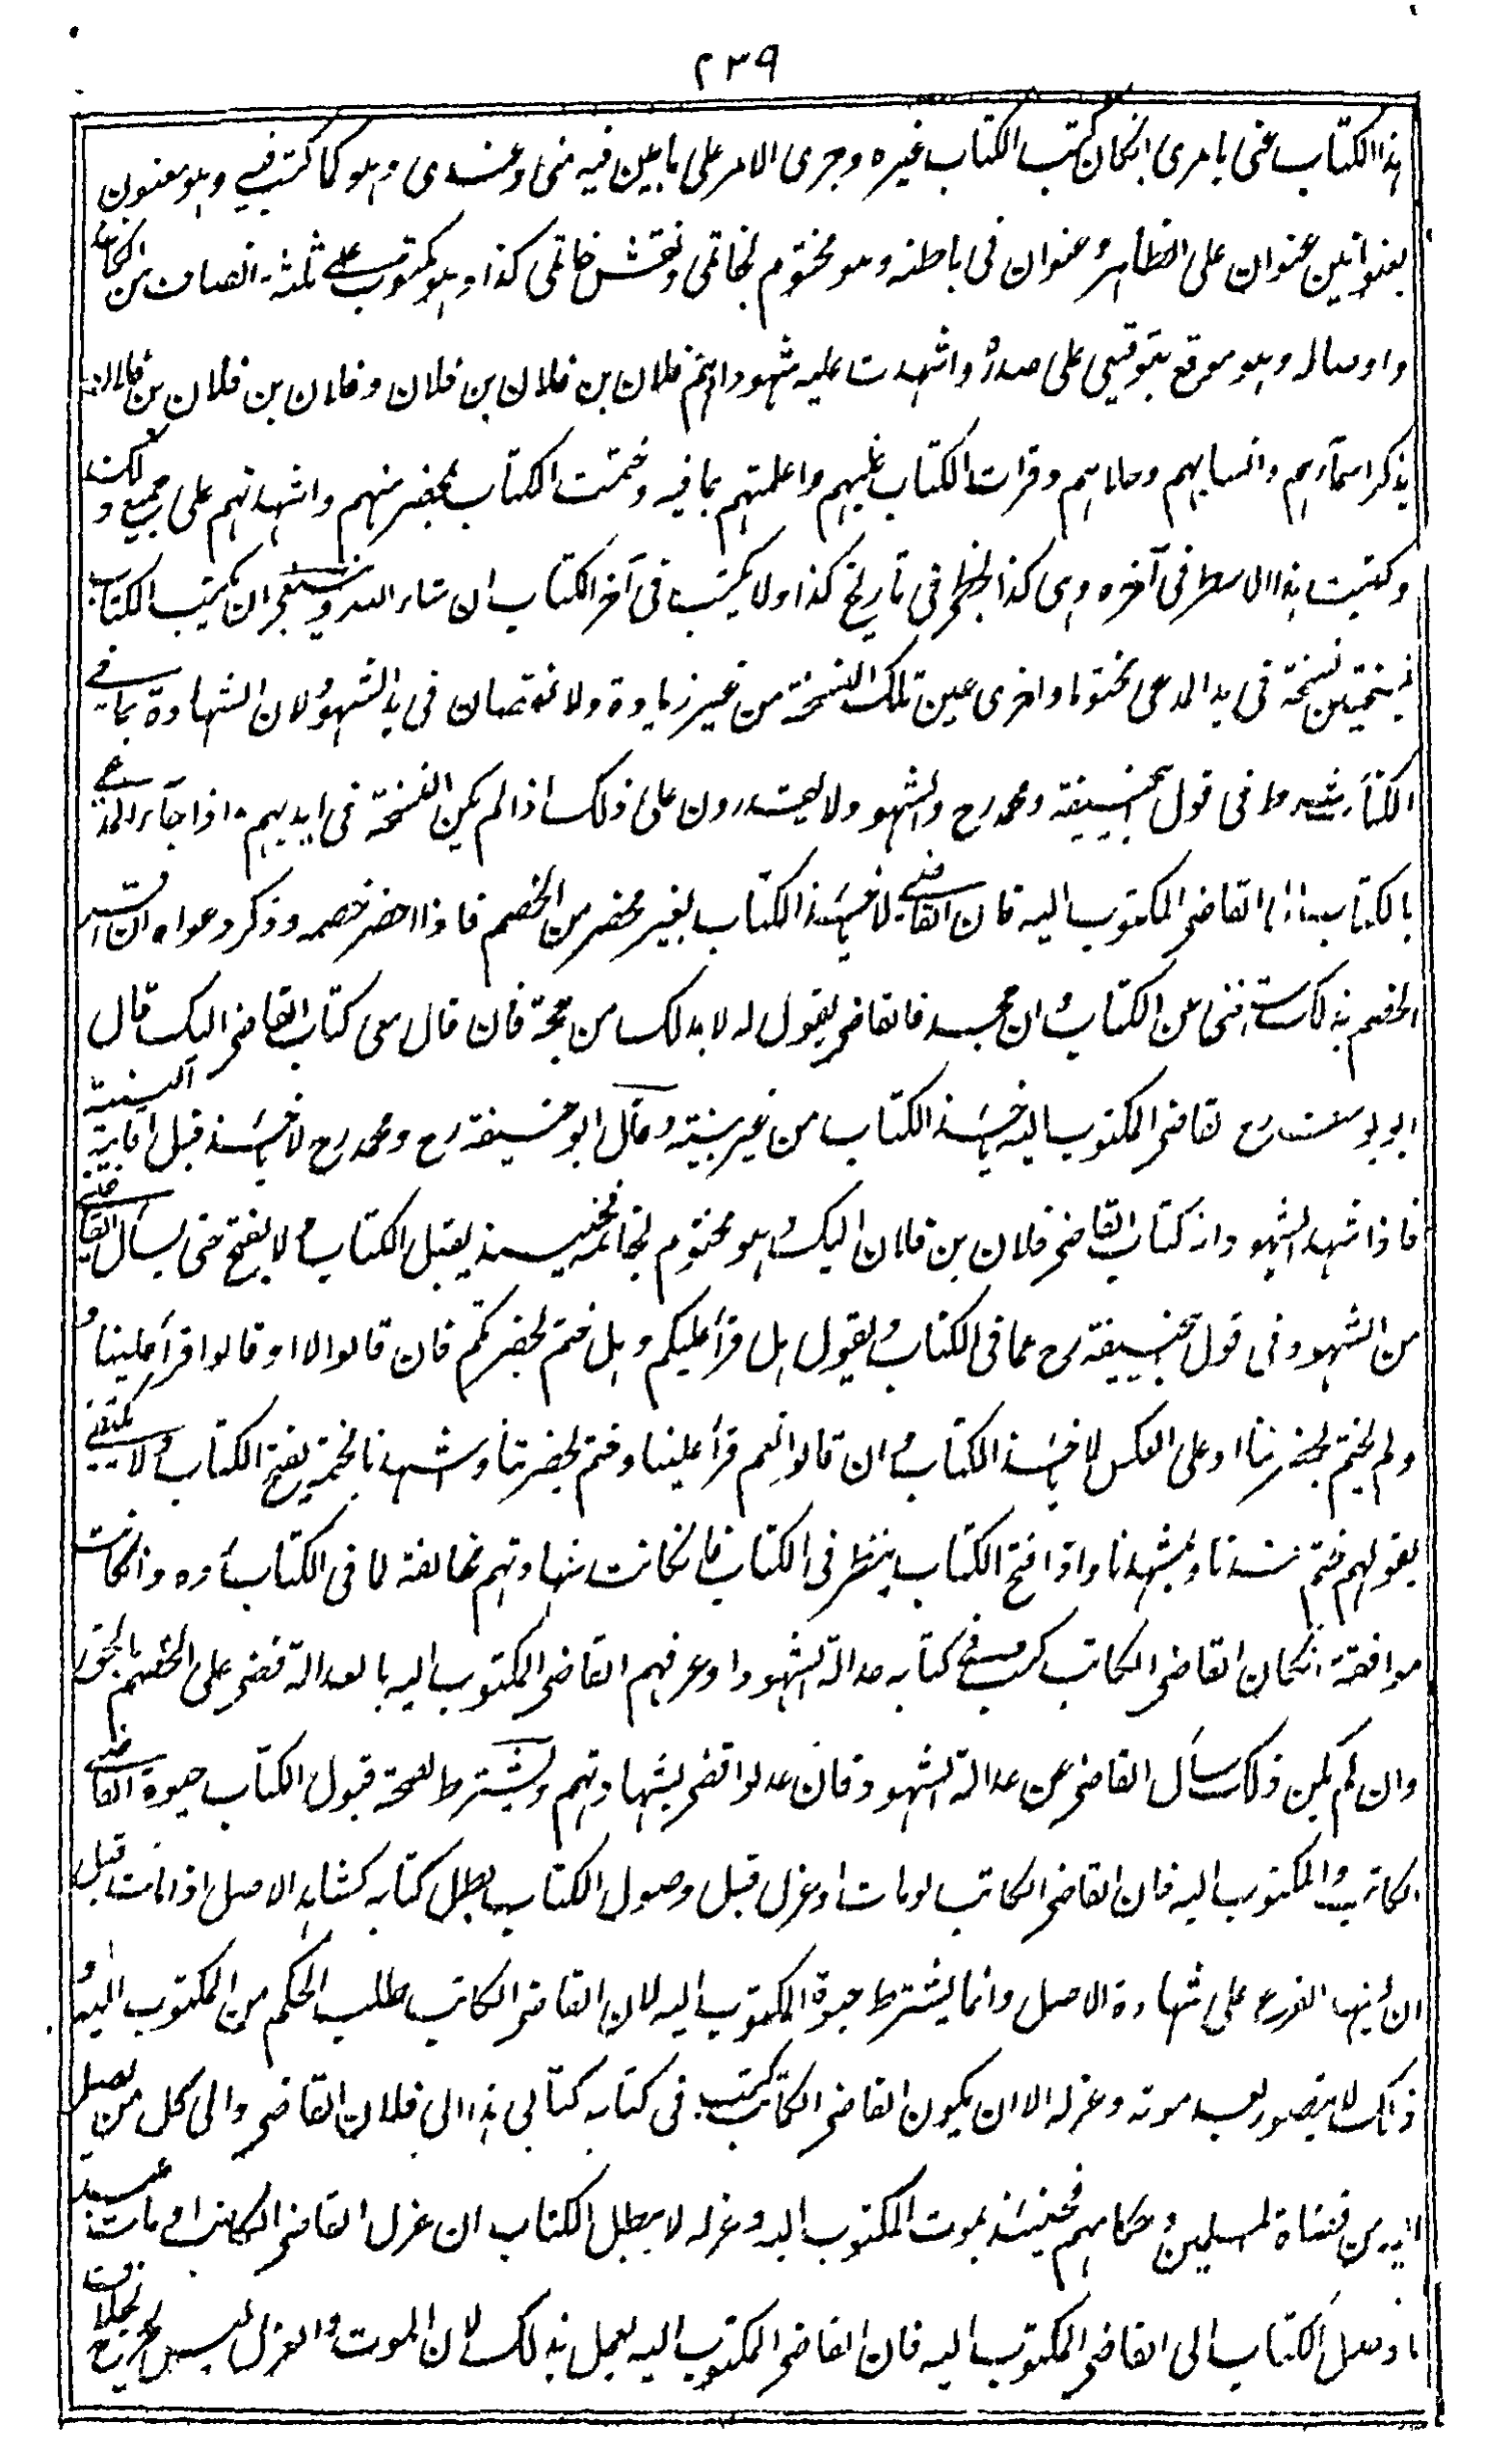 ٢٣٩
هذا الكتاب عنى بامرى انكان كتب الكتاب غيره وجرى الامر على ما بين فيه منى وعندى وهو كما كتب فيه وهو معنون
بعنوانين عنوان على الظاهر وعنوان فى باطنه وهو مختوم بخاتمى ونقش خاتمى كذا وهو مكتوب على ثلثة انصاف من الكاغذ
واوصاله وهو موقع بتوقيعى على صدره واشهدت عليه شهودا هم فلان بن فلان بن فلان وفلان بن فلان بن فلان
يذكر اسمآءهم وانسابهم وحلاهم وقرات الكتاب عليهم واعلمتهم بما فيه وختمت الكتاب بمحضر منهم واشهدتهم على جميع ذلك
وكتبت هذا الاسطر فى آخره وهى كذا بخطى فى تاريخ كذا ولا يكتب فى آخر الكتاب ان شاء الله وينبغى ان يكتب الكتاب
نسختين نسخة فى يد المدعى مختوما واخرى عين تلك النسخة من غير زيادة ولا نقصان فى يد الشهود لان الشهادة بما فى
الكتاب شرط فى قول ابيحنيفة ومحمد رح والشهود لا يقدرون على ذلك اذا لم يكن النسخة فى ايديهم واذا جآء المدعى
بالكتاب الى القاضى المكتوب اليه فان القاضى لا ياخذ الكتاب بغير محضر من الخصم فاذا احضر خصمه وذكر دعواه ان اقر
الخصم بذلك استغنى عن الكتاب وان جحد فالقاضى يقول له لا بد لك من حجة فان قال معى كتاب القاضى اليك قال
ابو يوسف رح القاضى المكتوب اليه ياخذ الكتاب من غير بينة وقال ابو حنيفة رح ومحمد رح لا ياخذ قبل اقامة البينة
فاذا شهد الشهود انه كتاب القاضى فلان بن فلان اليك وهو مختوم بخاتمه فحينئذ يقبل الكتاب ولا يفتح حتى يسأل القاضى
من الشهود فى قول ابيحنيفة رح عما فى الكتاب ويقول هل قرأ عليكم وهل ختم بحضرتكم فان قالوا لا او قالوا قرأ علينا و
لم يختم بحضرتنا او على العكس لا ياخذ الكتاب وان قالوا نعم قرأ علينا وختم بحضرتنا واشهدنا بختمه يفتح الكتاب ولا يكتفى
بقولهم ختم عندنا ويشهدنا واذا فتح الكتاب ينظر فى الكتاب فانكانت شهادتهم مخالفة لما فى الكتاب رده وانكانت
موافقة انكان القاضى الكاتب كتب فى كتابه عدالة الشهود او عرفهم القاضى المكتوب اليه بالعدالة قضى على الخصم بالحق
وان لم يكن ذلك سأل القاضى عن عدالة الشهود فان عدلوا قضى بشهادتهم ويشترط لصحة قبول الكتاب حيوة القاضى
الكاتب والمكتوب اليه فان القاضى الكاتب لو مات او عزل قبل وصول الكتاب يبطل كتابه كشاهد الاصل اذا مات قبل
ان يشهد الفرع على شهادة الاصل وانما يشترط حيوة المكتوب اليه لان القاضى الكاتب طلب الحكم من المكتوب اليه و
ذلك لا يتصور بعد موته وعزله الا ان يكون القاضى الكاتب كتب فى كتابه كتابى هذا الى فلان القاضى والى كل من يصل
اليه من قضاة المسلمين وحكامهم فحينئذ بموت المكتوب اليه وعزله لا يبطل الكتاب ان عزل القاضى الكاتب او مات بعد
ما وصل الكتاب الى القاضى المكتوب اليه فان القاضى المكتوب اليه يعمل بذلك لان الموت والعزل ليس بجرح بخلاف